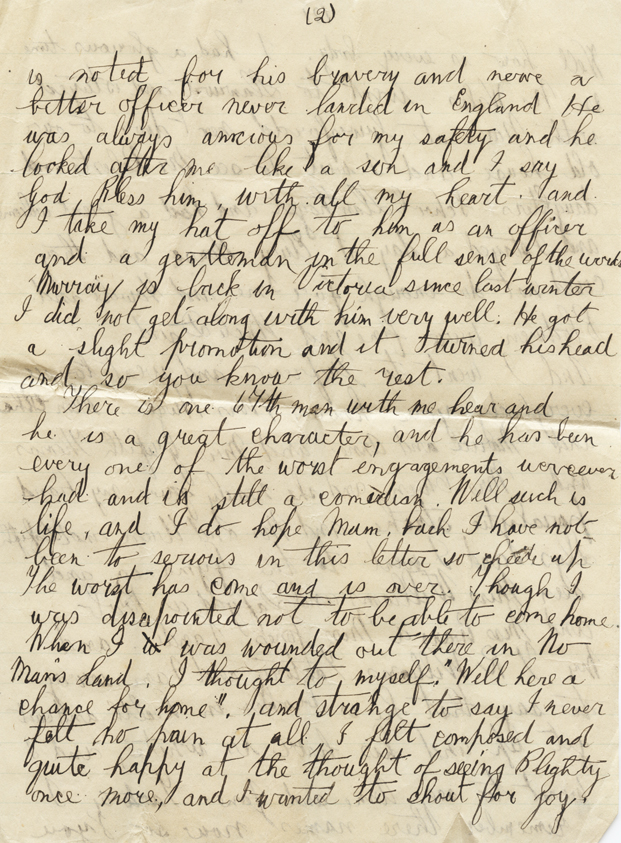 (2)
is noted for his bravery and never a
better officer never landed in England He
was always anxious for my safety and he
looked after me like a son and I say
God Bless him, with all my heart. and
I take my hat off to him as an officer
and a gentleman in the full sense of the word
Murray is back in Victoria since last winter
I did not get along with him very well. He got
a slight promotion and it turned his head
and so you know the rest.
There is one 67th man with me hear and
he is a great character, and he has been
every one of the worst engagements we ever
had and is still a comedian. Well such is
life, and I do hope Mum, I have not
been to serious in this letter so cheer up
The worst has come and is over. Though I
was disapointed not to be able to come home.
When I was wounded out there in No
Man's Land. I thought to myself. "Well here a
chance for home". and strange to say I never
felt no pain at all I felt composed and
quite happy at the thought of seeing Blighty
once more, and I wanted to shout for joy.